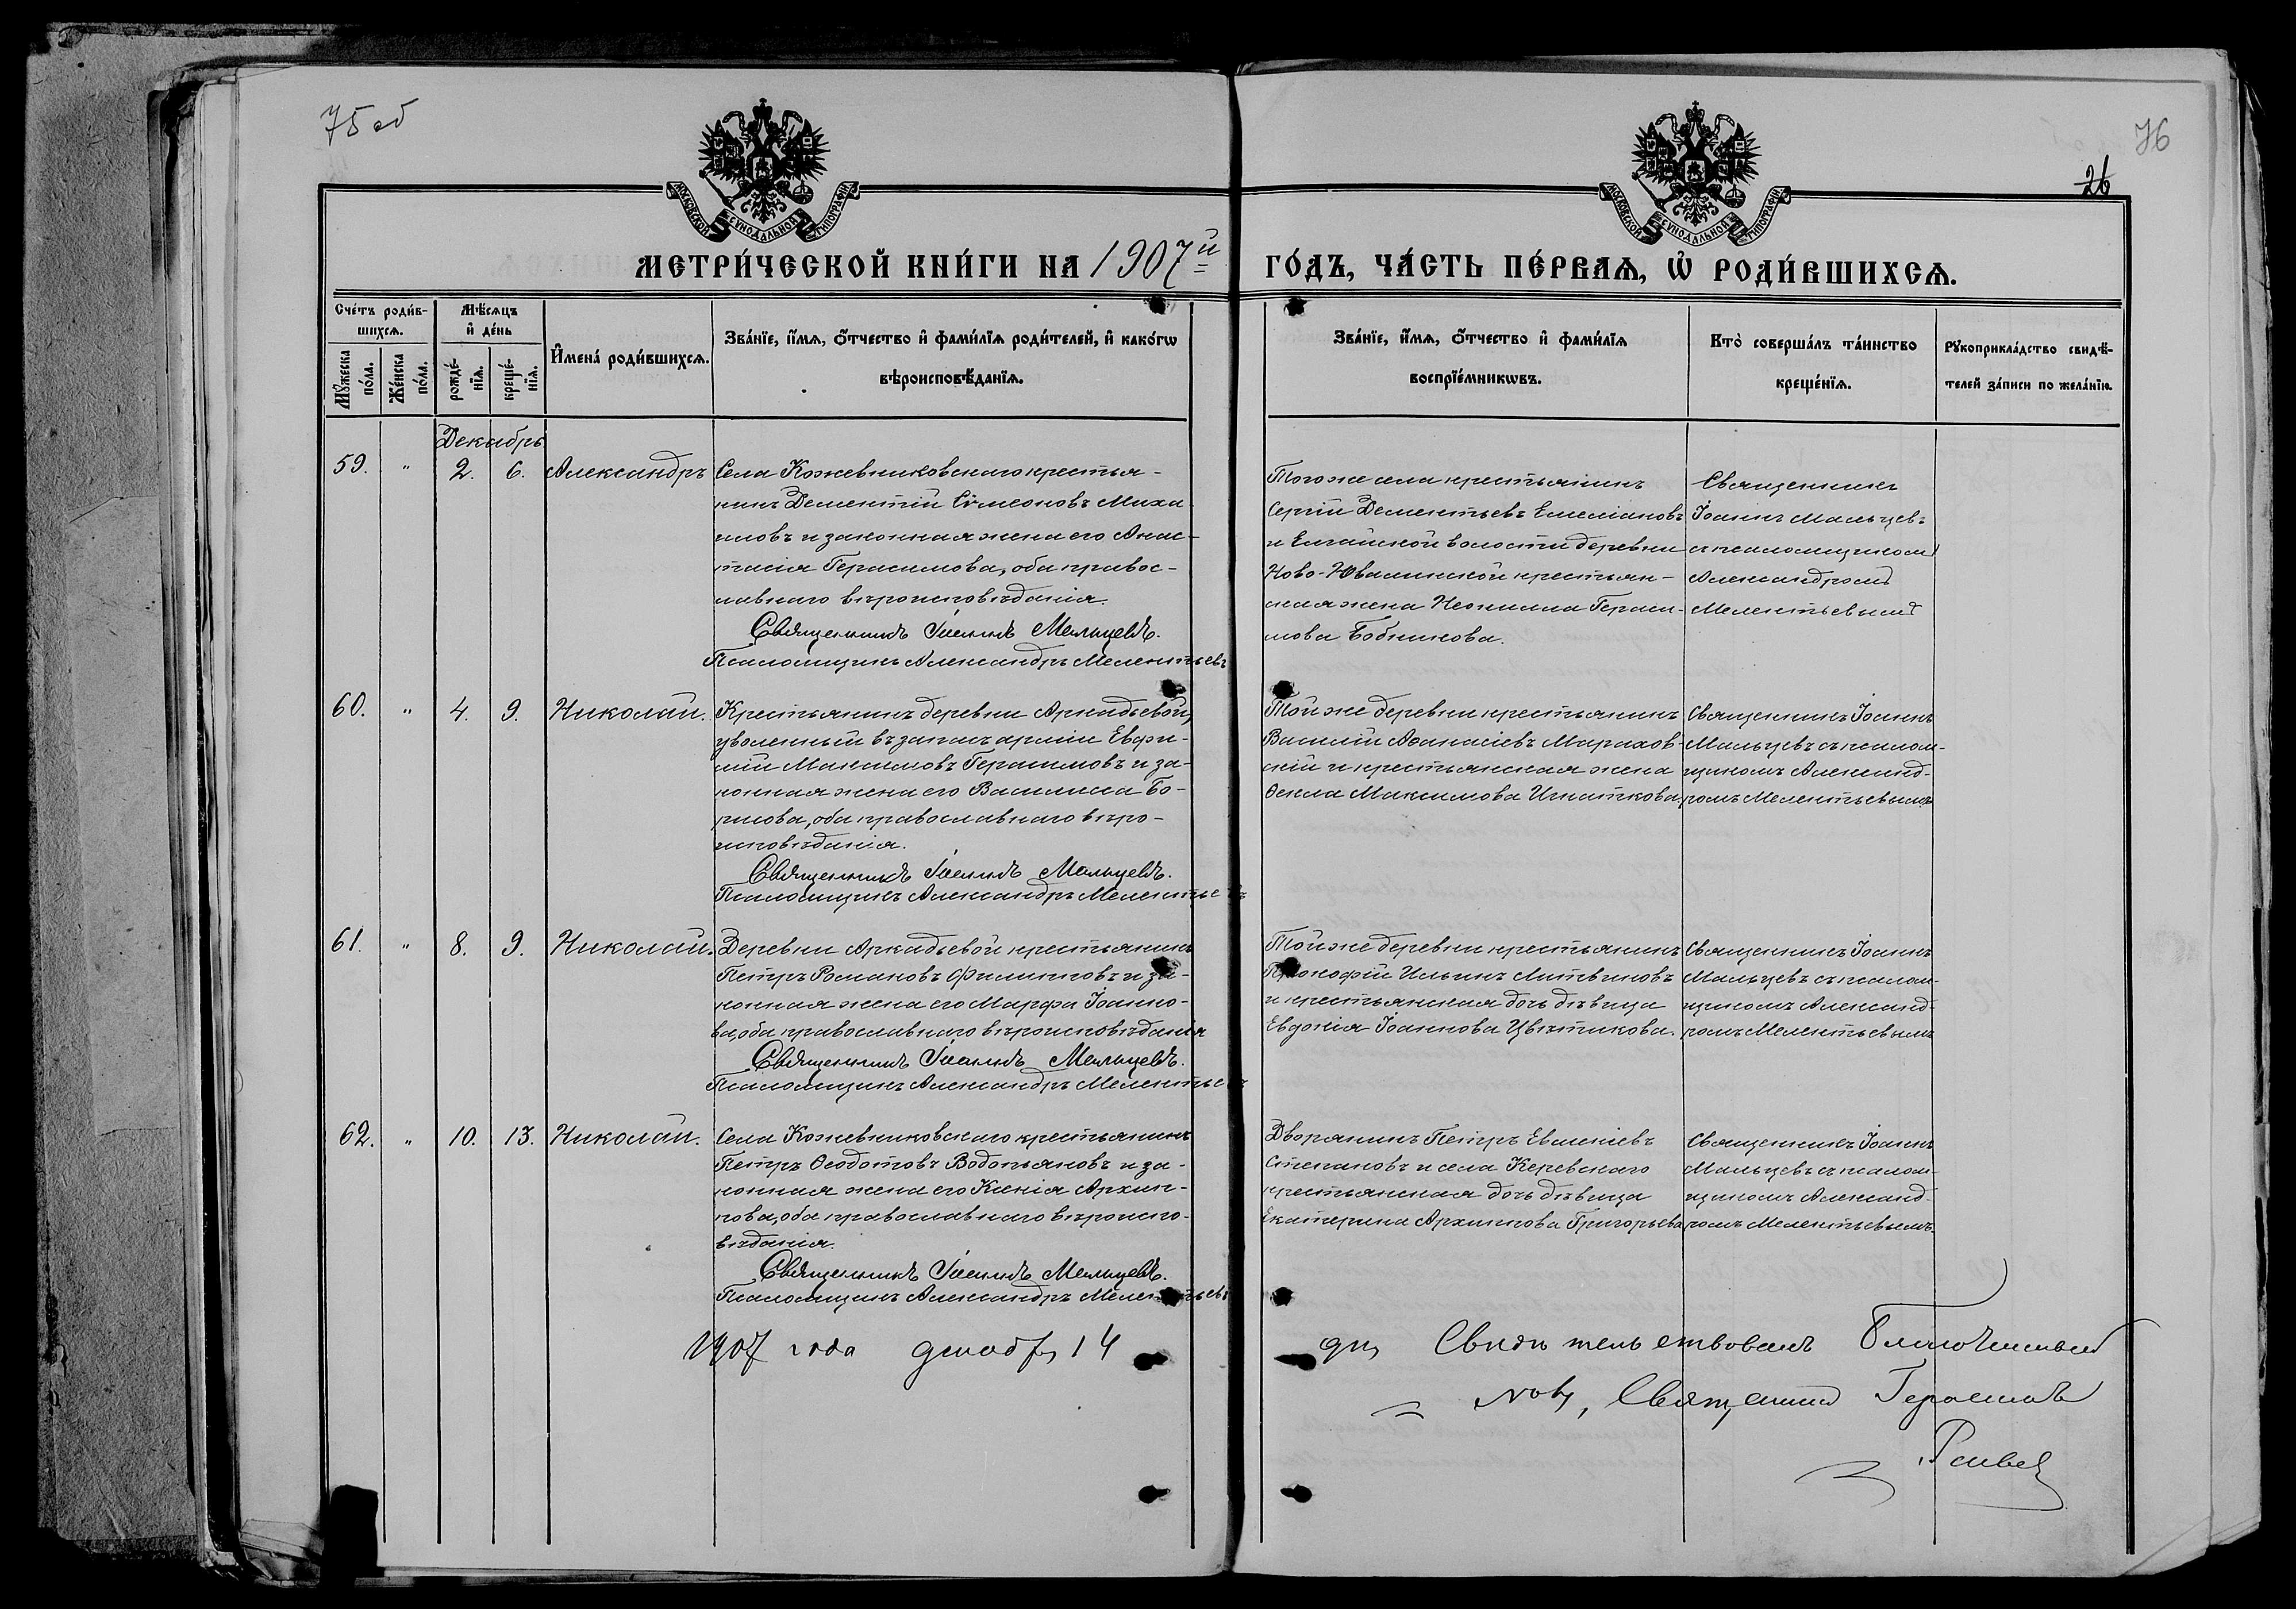 75 об
76
26
МОСКОВСКОЙ СѴНОДАЛЬНОЙ ТИПОГРАФІИ
МОСКОВСКОЙ СѴНОДАЛЬНОЙ ТИПОГРАФІИ
МЕТРИ́ЧЕСКОЙ КНИ́ГИ НА 1907й ГО́ДЪ, ЧА́СТЬ ПЕ́РВАѦ, Ѡ҆ РОДИ́ВШИХСѦ.
Сче́тъ роди́в-
шихсѧ.
Мѣ́сѧцъ
и҆ де́нь
Мꙋ́жеска
по́ла.
Же́нска
по́ла.
рожде́-
нїѧ.
креще́-
нїѧ.
И҆мена̀ роди́вшихсѧ.
Зва́нїе, и҆́мѧ, ѻ҆́тчество и҆ фами́лїѧ роди́телей, и҆ како́гѡ
вѣроисповѣ́данїѧ.
Зва́нїе, и҆́мѧ, ѻ҆́тчество и҆ фами́лїѧ
воспрїе́мникѡвъ.
Кто̀ соверша́лъ та́инство
креще́нїѧ.
Рꙋкоприкла́дство свидѣ́-
телей за́писи по жела́нїю.
Декабрь
59. " 2. 6. Александръ
Села Кожевниковскаго крестья-
нинъ Дементій Сѵмеоновъ Миха
иловъ и законная жена его Анас-
тасія Герасимова, оба правос-
лавнаго вѣроисповѣданія.
Священникъ Іоаннъ Мальцевъ.
Псаломщикъ Александръ Мелентьевъ
Того же села крестьянинъ
Сергій Дементьевъ Емеліановъ
и Елгайской волости деревни
Ново-Ювалинской крестьян-
ская жена Неонилла Гераси-
мова Бобникова.
Священникъ
Іоаннъ Мальцевъ
съ псаломщикомъ
Александромъ
Мелентьевымъ
60. " 4. 9. Николай.
Крестьянинъ деревни Аркадьевой,
уволенный въ запасъ арміи Евфи-
мій Максимовъ Герасимовъ и за-
конная жена его Василиса Бо-
рисова, оба православнаго вѣро-
исповѣданія.
Священникъ Іоаннъ Мальцевъ.
Псаломщикъ Александръ Мелентьевъ
Той же деревни крестьянинъ
Василій Аѳанасіевъ Мараховъ-
скій и крестьянская жена
Ѳекла Максимова Игнаткова
Священникъ Іоаннъ
Мальцевъ съ псалом-
щикомъ Александ-
ромъ Мелентьевымъ
61. " 8. 9. Николай.
Деревни Аркадьевой крестьянинъ
Петръ Романовъ Филипповъ и за-
конная жена его Марфа Іоанно-
ва, оба православнаго вѣроисповѣданія
Священникъ Іоаннъ Мальцевъ.
Псаломщикъ Александръ Мелентьевъ
Той же деревни крестьянинъ
Прокофій Ильинъ Литвиновъ
и крестьянская дочь дѣвица
Евдокія Іоаннова Цвѣткова.
Священникъ Іоаннъ
Мальцевъ съ псалом-
щикомъ Александ-
ромъ Мелентьевымъ
62. " 10. 13. Николай.
Села Кожевниковскаго крестьянинъ
Петръ Ѳеодотовъ Водопьяновъ и за-
конная жена его Ксенія Архип-
пова, оба православнаго вѣроиспо-
вѣданія.
Священникъ Іоаннъ Мальцевъ.
Псаломщикъ Александръ Мелентьевъ
Дворянинъ Петръ Евсевіевъ
Степановъ и села Киревскаго
крестьянская дочь дѣвица
Екатерина Архиппова Григорьева
Священникъ Іоаннъ
Мальцевъ съ псалом-
щикомъ Александ-
ромъ Мелентьевымъ.
1907 года декабря 14 дня Свидѣтельствовалъ Благочинный
№ Священникъ